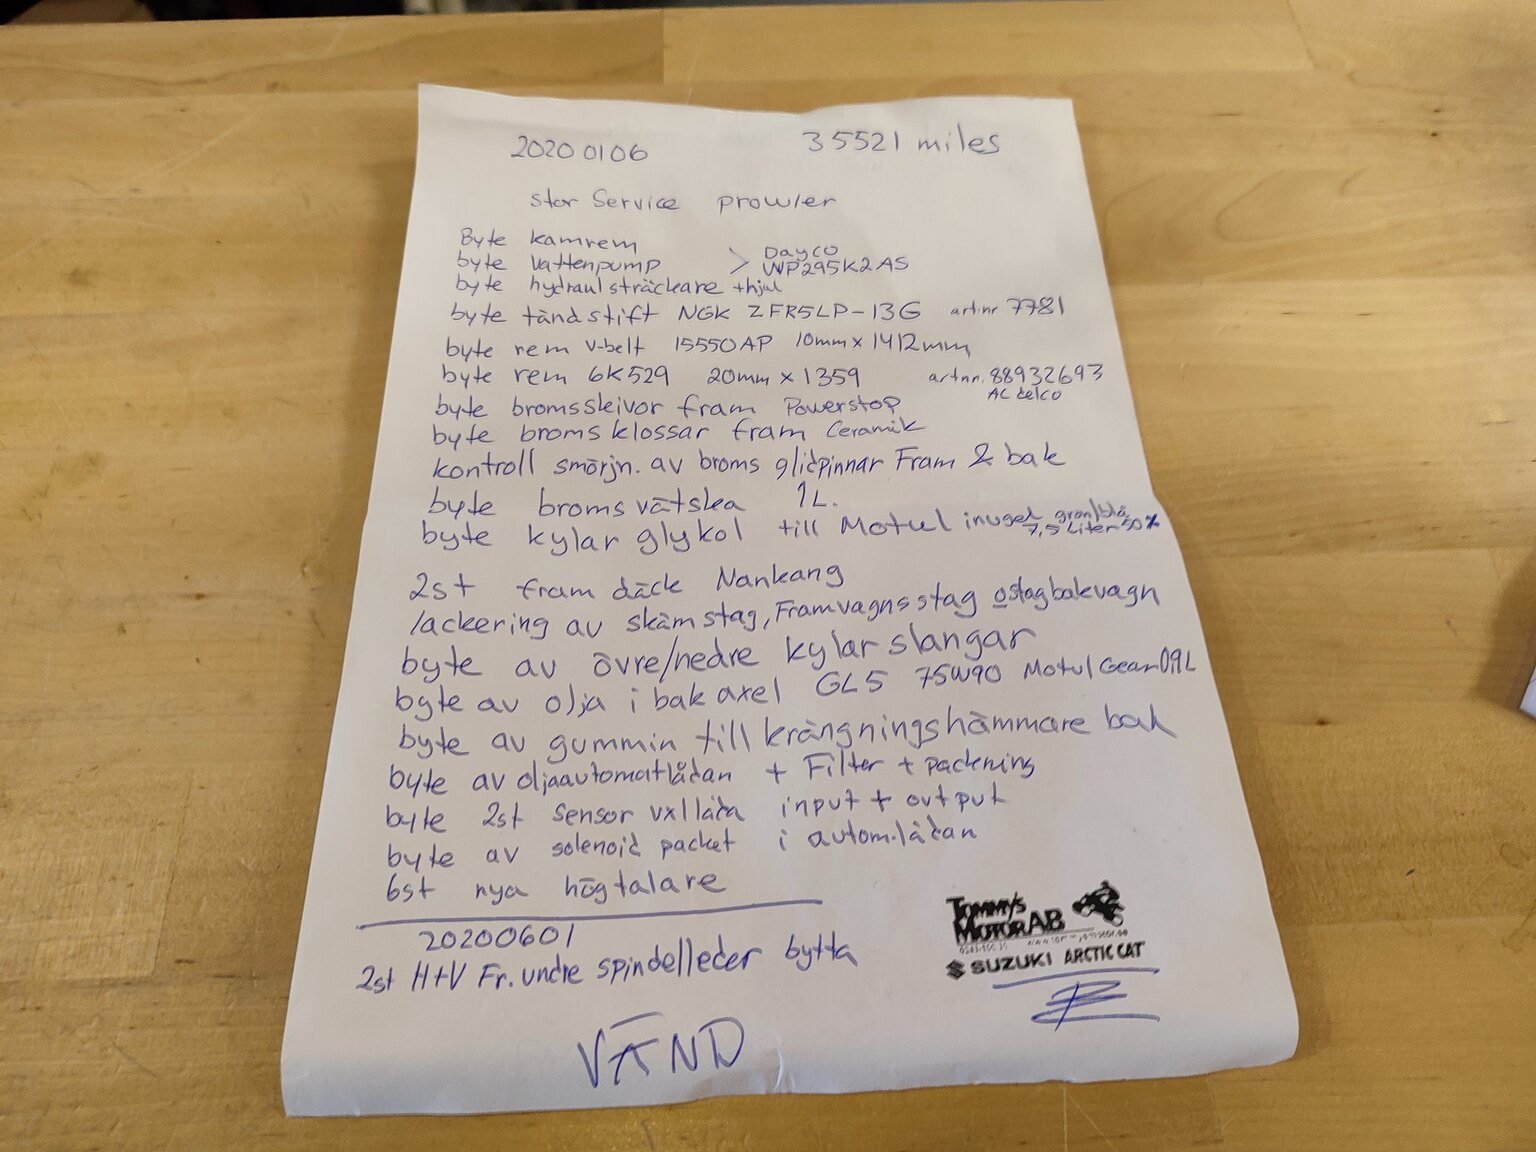 20200106 35521 miles
stor Service prowler
Byte kamrem
byte vattenpump > Dayco WP295K2AS
byte hydraulsträckare + hjul
byte tändstift NGK ZFR5LP-13G art.nr 7781
byte rem V-belt 15550AP 10mm x 1412mm
byte rem 6K529 20mm x 1359 artnr. 88932693
AC delco
byte bromsskivor fram Powerstop
byte bromsklossar fram Ceramik
kontroll smörjn. av broms glidpinnar Fram & bak
byte bromsvätska 1L.
byte kylar glykol till Motul inugel grön/blå
7,5 Liter 50%
2st fram däck Nankang
lackering av skämstag, Framvagnsstag o stag bakvagn
byte av övre/nedre kylar slangar
byte av olja i bak axel GL5 75W90 Motul Gear 0,9L
byte av gummin till krängningshämmare bak
byte av olja automatlådan + Filter + packning
byte 2st sensor vxllåda input + output
byte av solenoid packet i autom.lådan
6st nya högtalare
20200601
2st H+V Fr. undre spindelleder bytta
VÄND
TOMMY'S
MOTOR AB
SUZUKI ARCTIC CAT